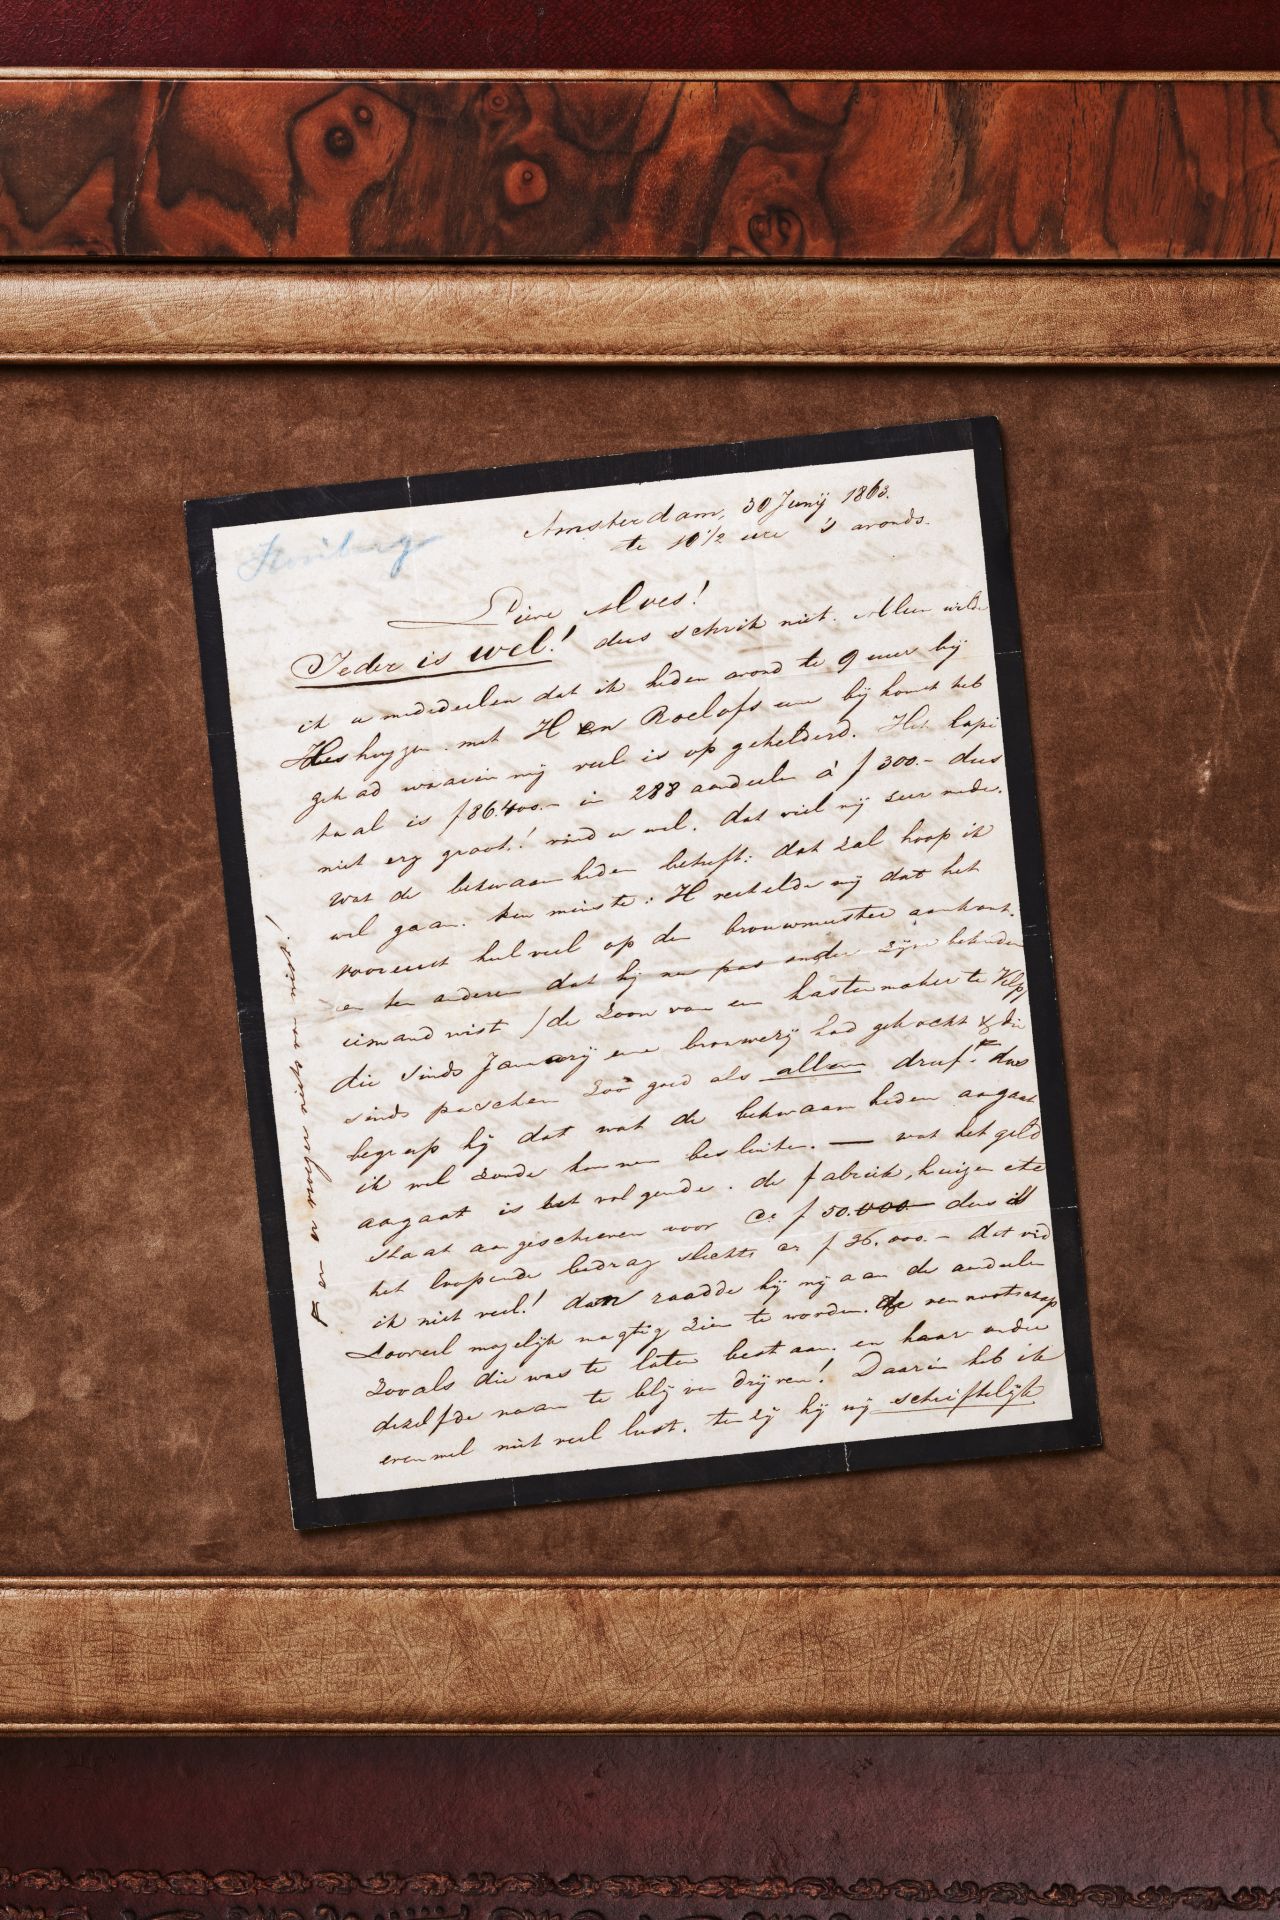 Amsterdam, 30 Junij 1863.
te 10 1/2 ure 's avonds.
Lieve Alves!
Ieder is wel! dus schrik niet. Alleen wilde
ik u mededeelen dat ik heden avond te 9 uur bij
Heshuyzen met H en Roelofs een bij komst heb
gehad waarin mij veel is op gehelderd. Het kapi
taal is f 86.400.- in 288 aandeelen à f 300.- dus
niet erg groot! vind u wel. dat viel mij zeer mede.
wat de bekwaamheden betreft: dat zal hoop ik
wel gaan. ten minste: H vertelde mij dat het
vooreerst heel veel op den brouwmeester aankomt.
en ten anderen dat hij nu pas onder zijn bekenden
iemand wist /de zoon van een kastenmaker te Velp/
die sinds January eene brouwerij had gekocht & die
sinds paschen zoo goed als alleen dreef. dus
begreep hij dat wat de bekwaamheden aangaat
ik wel zoude kunnen besluiten. — wat het geld
aangaat is het volgende. de fabriek, huizen etc
staat aangeschreven voor Ca. f 50.000— dus is
het loopende bedrag slechts ca f 36.000.- dat vind
ik niet veel! dan raadde hij mij aan de aandeelen
zooveel mogelijk magtig zien te worden. de vennootschap
zooals die was te laten bestaan. en haar onder
dezelfde naam te blijven drijven! Daarin heb ik
evenwel niet veel lust. ten zij hij mij schriftelijk
F en er vroeger niets van wist!